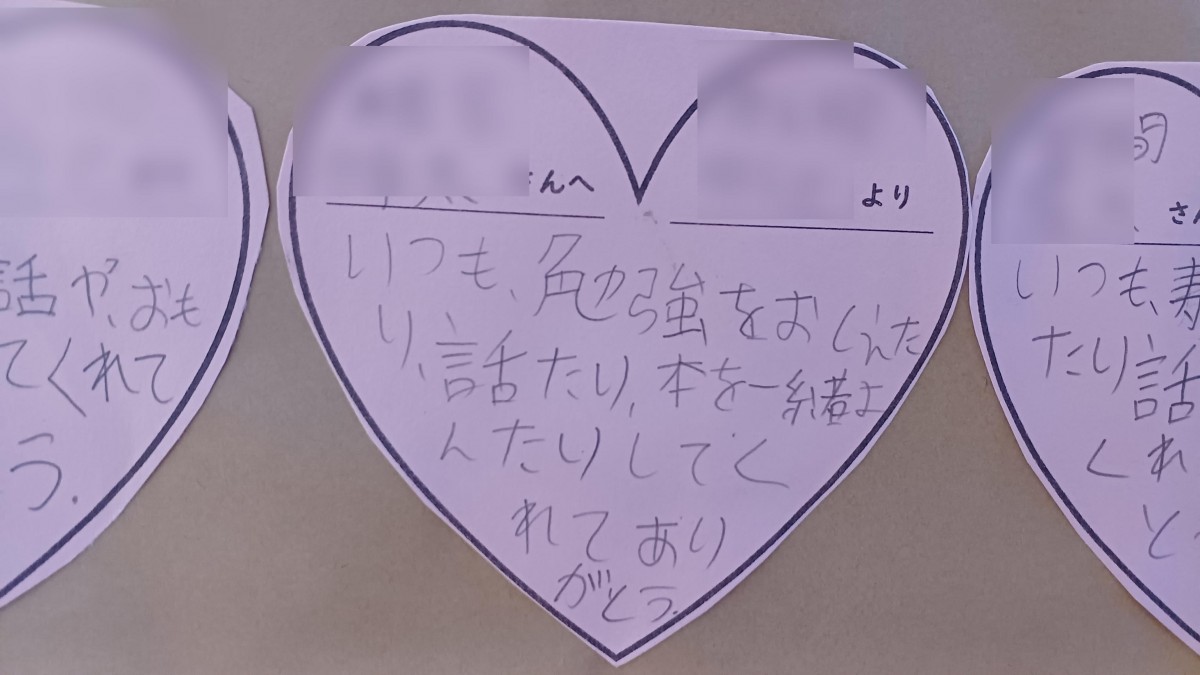 話や、おも
てくれて
う.
んへ
より
いつも、勉強をおしえた
り、話たり、本を一緒よ
んたりしてく
れてあり
がとう.
さ
いつも、
たり話
くれ
と